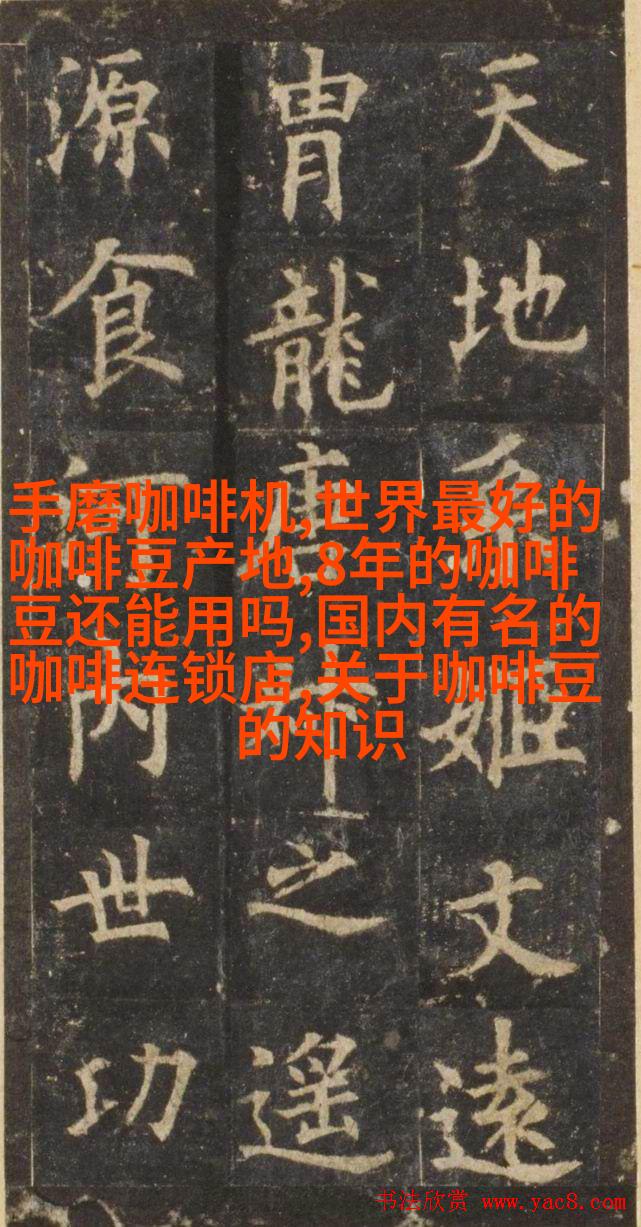 天地系姬文遠
胄龍唐之遥
源食内世功
手磨咖啡机,世界最好的
咖啡豆产地,8年的咖啡
豆还能用吗,国内有名的
咖啡连锁店,关于咖啡豆
的知识
书法欣赏 www.yac8.com